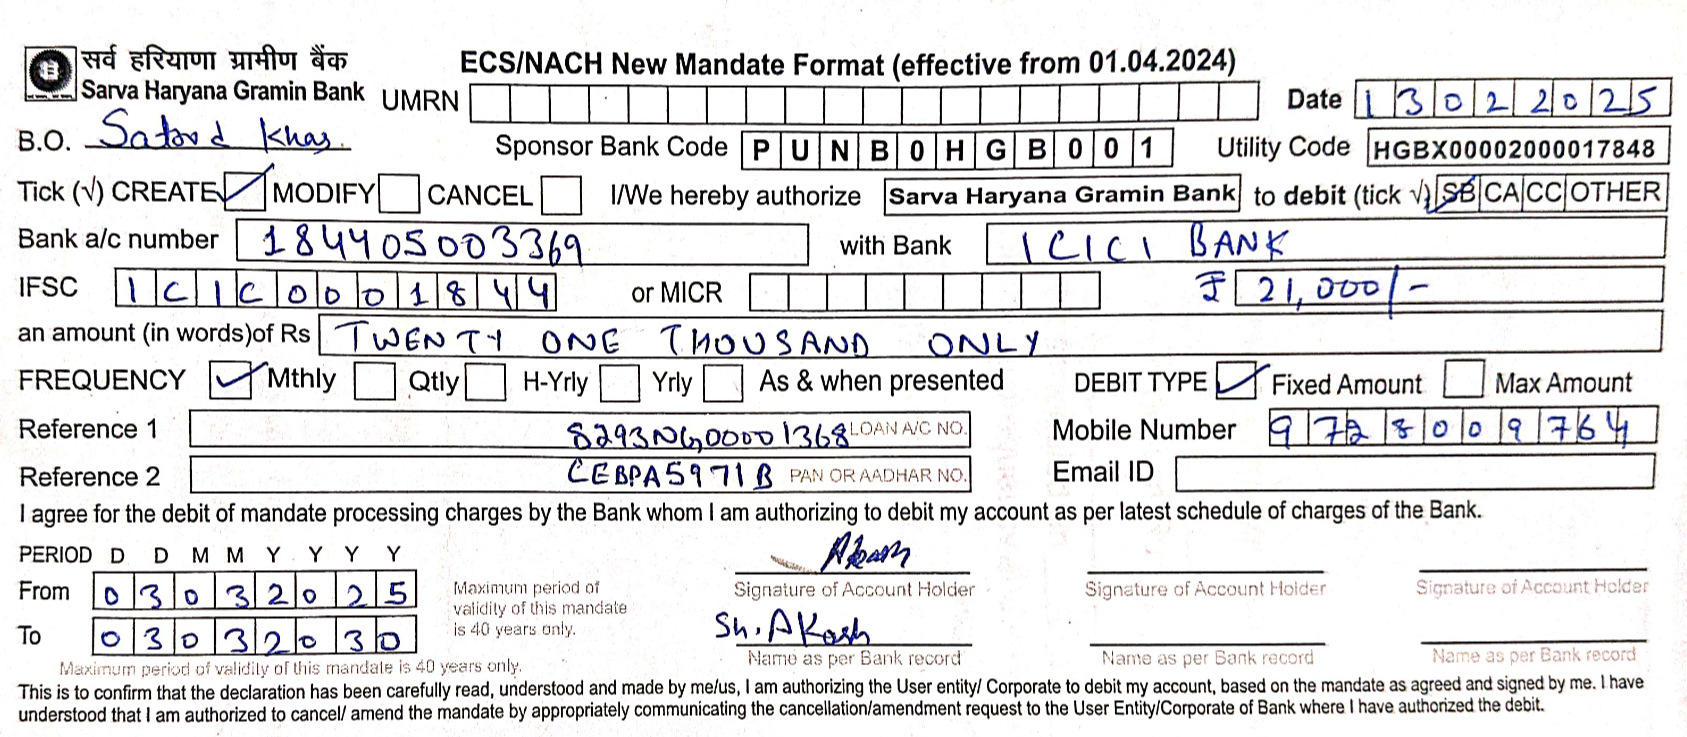 सर्व हरियाणा ग्रामीण बैंक
Sarva Haryana Gramin Bank
ECS/NACH New Mandate Format (effective from 01.04.2024)
UMRN
Date 13022025
B.O. Satrod Khas
Sponsor Bank Code PUNB0HGB001 Utility Code HGBX00002000017848
Tick (√) CREATE MODIFY CANCEL I/We hereby authorize Sarva Haryana Gramin Bank to debit (tick √) SB CA CC OTHER
Bank a/c number 184405003369 with Bank ICICI BANK
IFSC ICIC0001844 or MICR ₹ 21,000/-
an amount (in words)of Rs TWENTY ONE THOUSAND ONLY
FREQUENCY Mthly Qtly H-Yrly Yrly As & when presented DEBIT TYPE Fixed Amount Max Amount
Reference 1 8293NG00001368 LOAN A/C NO. Mobile Number 9728009764
Reference 2 CEBPA5971B PAN OR AADHAR NO. Email ID
I agree for the debit of mandate processing charges by the Bank whom I am authorizing to debit my account as per latest schedule of charges of the Bank.
PERIOD D D M M Y Y Y Y
Akash
From 03032025
Maximum period of validity of this mandate is 40 years only.
Signature of Account Holder Signature of Account Holder Signature of Account Holder
To 03032030
Sh. Akash
Name as per Bank record Name as per Bank record Name as per Bank record
Maximum period of validity of this mandate is 40 years only.
This is to confirm that the declaration has been carefully read, understood and made by me/us, I am authorizing the User entity/ Corporate to debit my account, based on the mandate as agreed and signed by me. I have
understood that I am authorized to cancel/ amend the mandate by appropriately communicating the cancellation/amendment request to the User Entity/Corporate of Bank where I have authorized the debit.